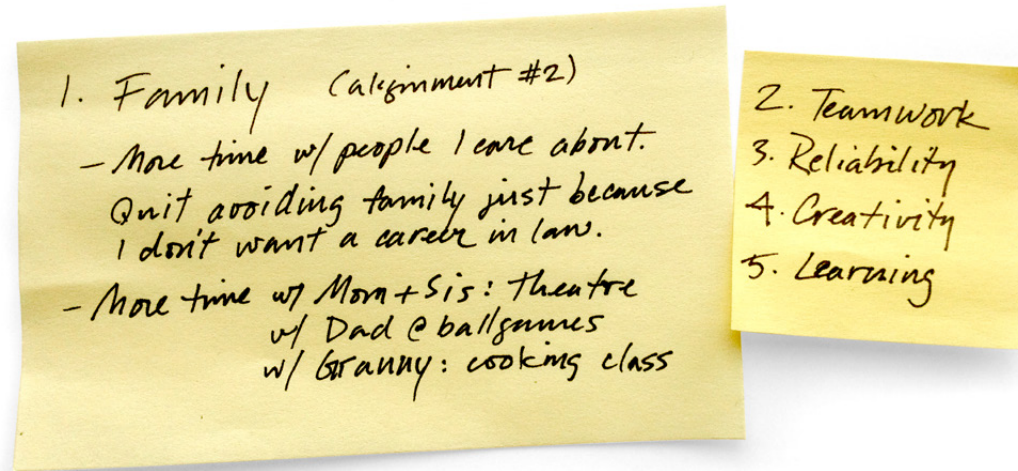 1. Family (alignment #2)
- More time w/ people I care about.
Quit avoiding family just because
I don't want a career in law.
- More time w/ Mom + Sis: theatre
w/ Dad @ ballgames
w/ Granny: cooking class
2. Teamwork
3. Reliability
4. Creativity
5. Learning